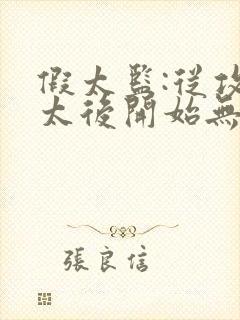 假太監:從攻
太後開始無
張良信